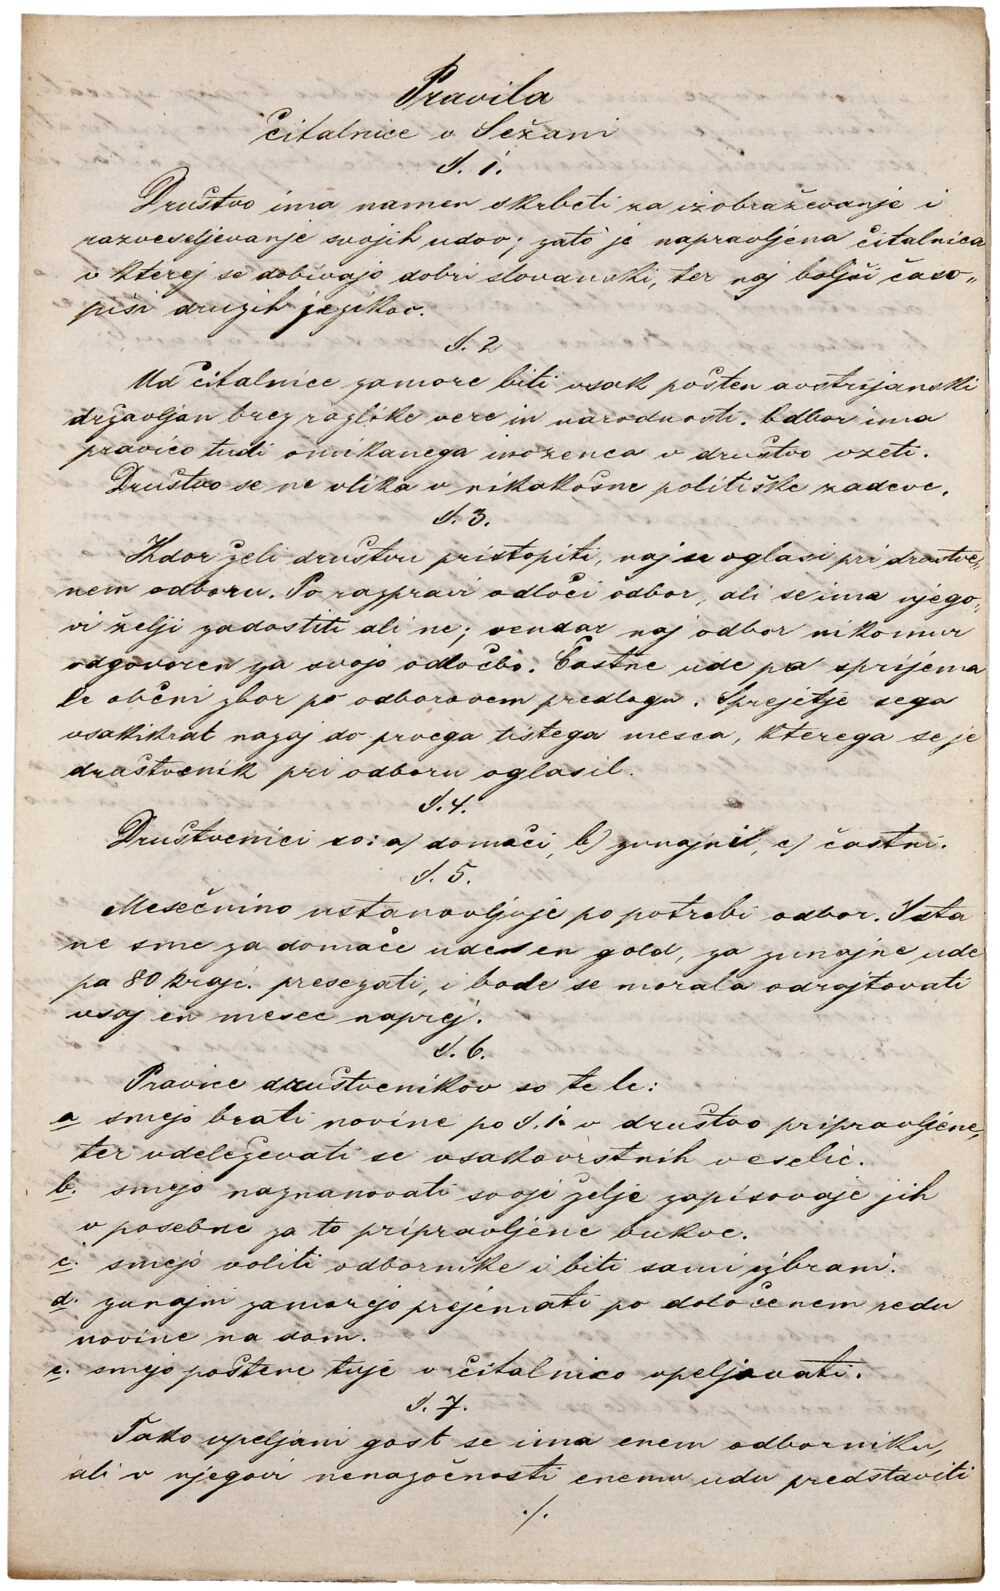 Pravila
čitalnice v Sežani
§. 1.
Društvo ima namen skrbeti za izobraževanje i
razveseljevanje svojih udov; zato je napravljena čitalnica
v kterej se dobivajo dobri slovanski, ter naj boljši časo„
pisi druzih jezikov.
§. 2
Ud čitalnice zamore biti vsak pošten avstrijanski
državljan brez razlike vere in narodnosti. Odbor ima
pravico tudi omikanega inozenca v društvo vzeti.
Društvo se ne vtika v nikakošne politiške zadeve.
§. 3.
Kdor želi društvu pristopiti, naj se oglasi pri društve„
nem odboru. Po razpravi odloči odbor, ali se ima njego„
vi želji zadostiti ali ne; vendar naj odbor nikomur
odgovoren za svojo odločbo. Častne ude pa sprijema
le občni zbor po odborovem predlogu. Sprejetje sega
vsakikrat nazaj do prvega tistega mesca, kterega se je
društvenik pri odboru oglasil.
§. 4.
Društvenici so: a) domači, b) zunajni, c) častni.
§. 5.
Mesečnino ustanovljuje po potrebi odbor. Ista
ne sme za domače ude en gold, za zunajne ude
pa 80 krajc. presezati, i bode se morala odrajtovati
vsaj en mesec naprej.
§. 6.
Pravice društvenikov so te le:
a smejo brati novine po §. 1. v društvo pripravljene,
ter vdelezevati se vsakovrstnih veselic.
b. smejo naznanovati svoje zelje zapisovaje jih
v posebne za to pripravljene bukve.
c. smejo voliti odbornike i biti sami izbrani.
d. zunajni zamorejo prejemati po določenem redu
novine na dom.
e. smejo poštene tuje v čitalnico vpeljavati.
§. 7.
Tako vpeljani gost se ima enem odborniku,
ali v njegovi nenazočnosti enemu udu predstaviti
./.